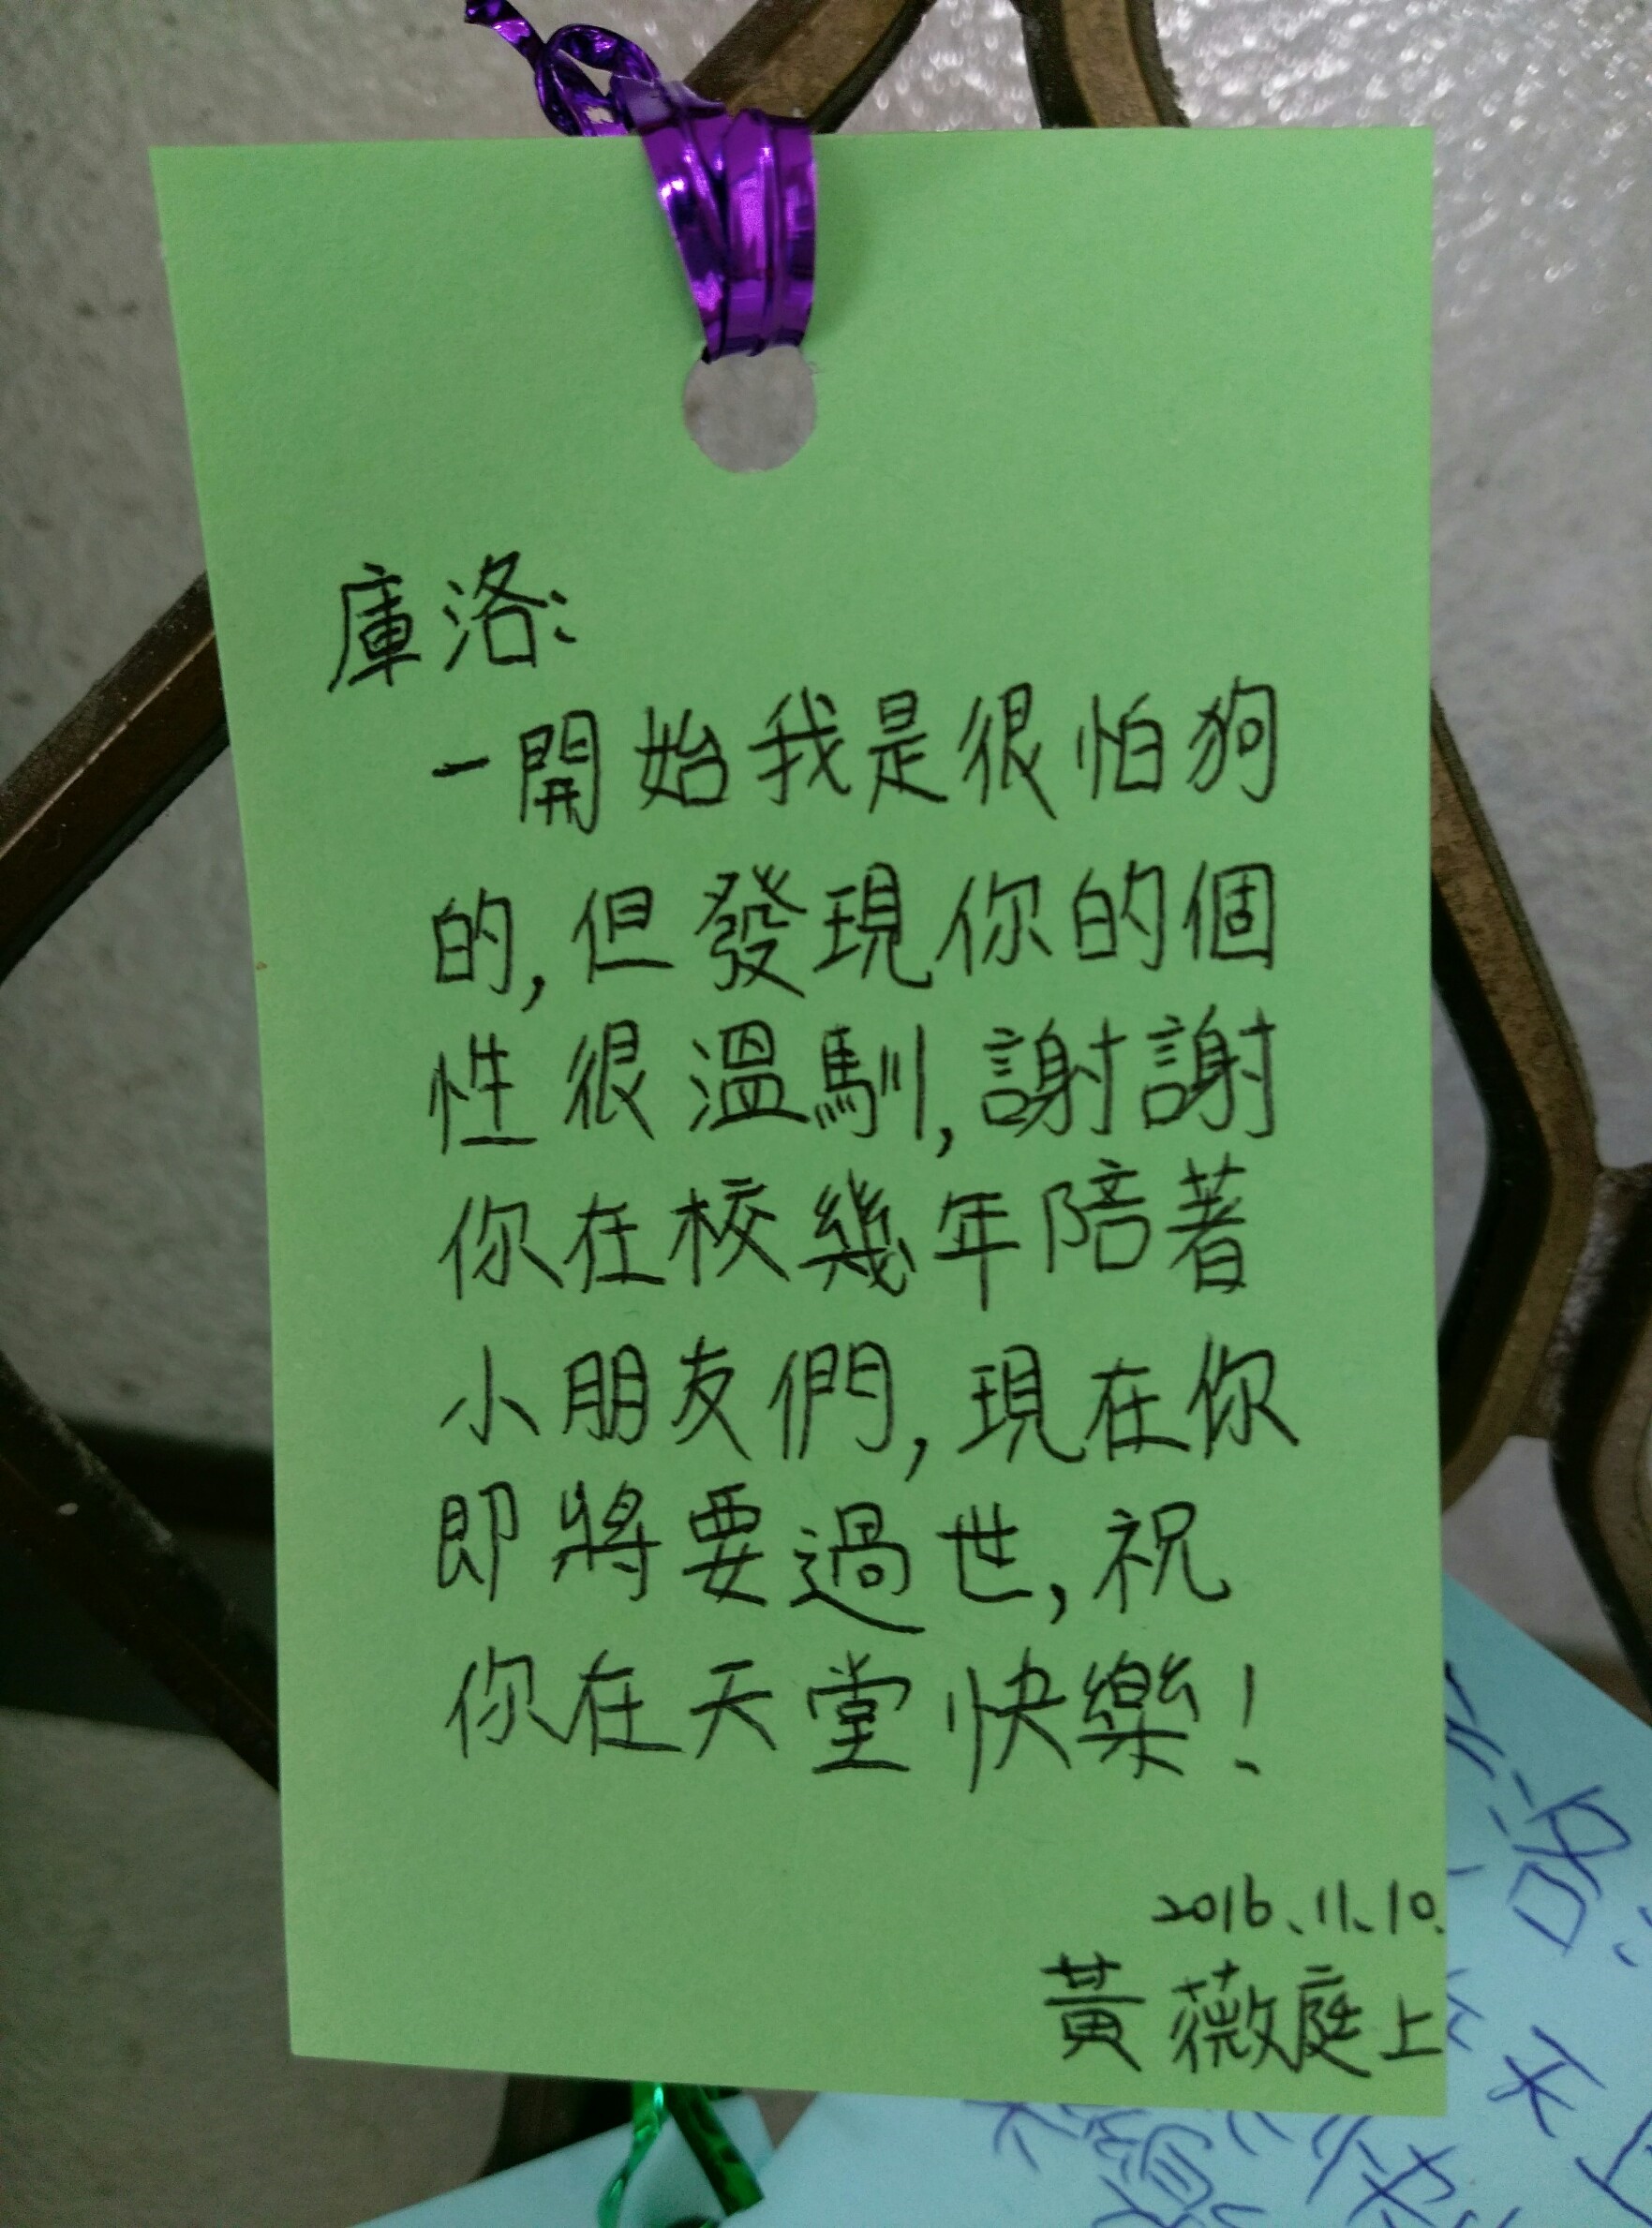 庫洛:
一開始我是很怕狗
的,但發現你的個
性很溫馴,謝謝
你在校幾年陪著
小朋友們,現在你
即將要過世,祝
你在天堂快樂!
2016、11、10.
黃薇庭上
洛:
天上
快